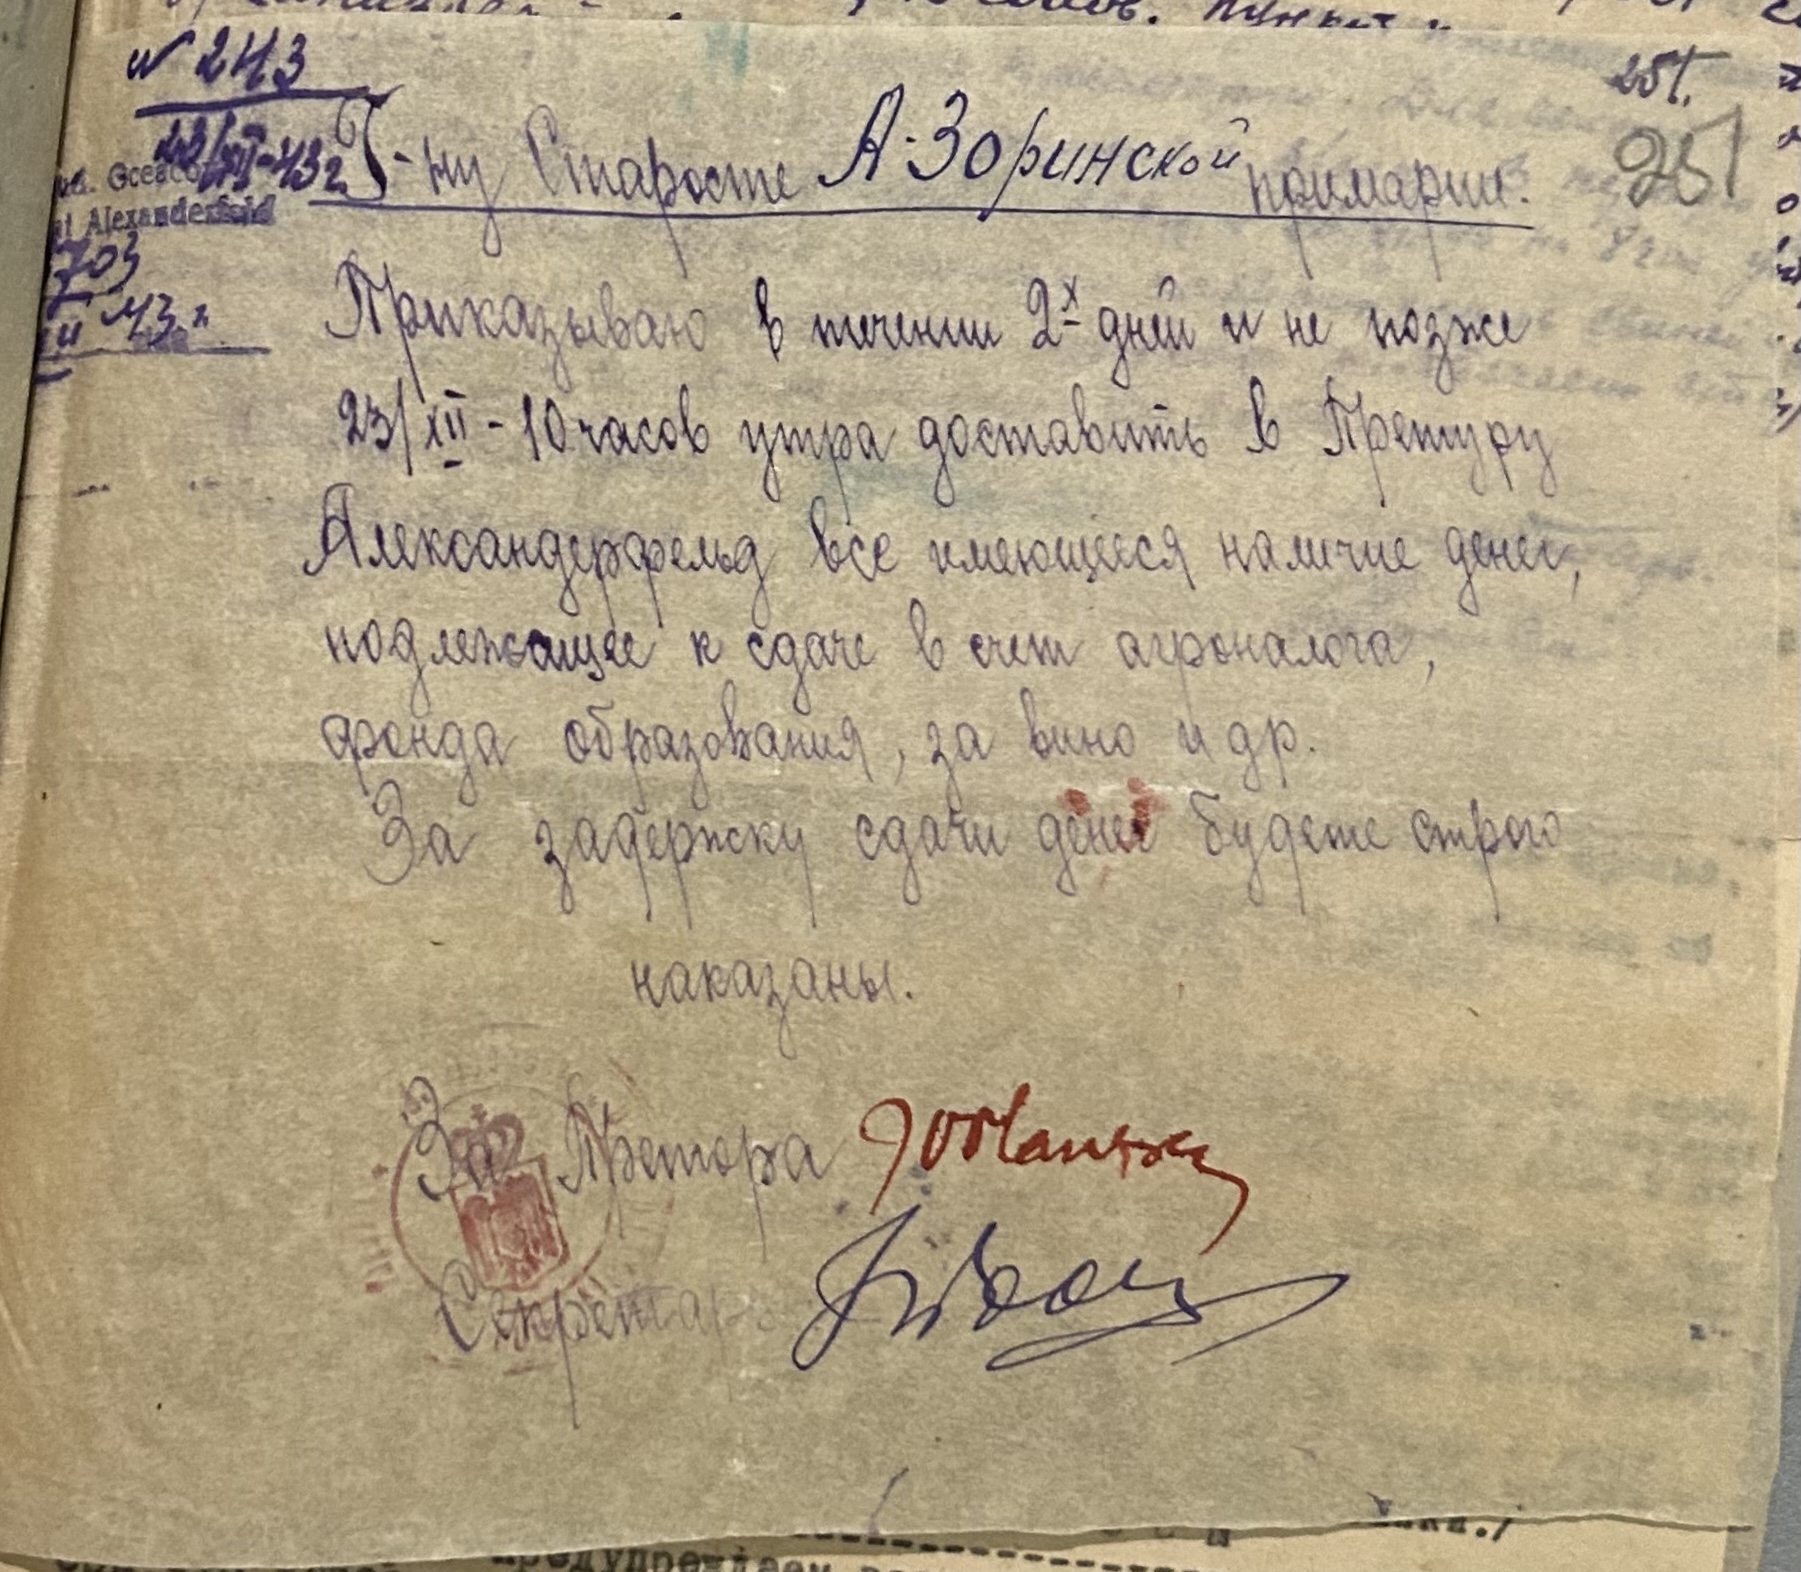 N 243
23/XII-43г.
Alexanderfeld
703
43г.
251.
251
Г-ну Старосте А-Зоринской примарии.
Приказываю в течении 2х дней и не позже
23/XII - 10 часов утра доставить в Претуру
Александерфельд все имеющееся наличие денег,
подлежащее к сдаче в счет агроналога,
фонда образования, за вино и др.
За задержку сдачи денег будете строго
наказаны.
За Претора
Секретарь
предупреждаем